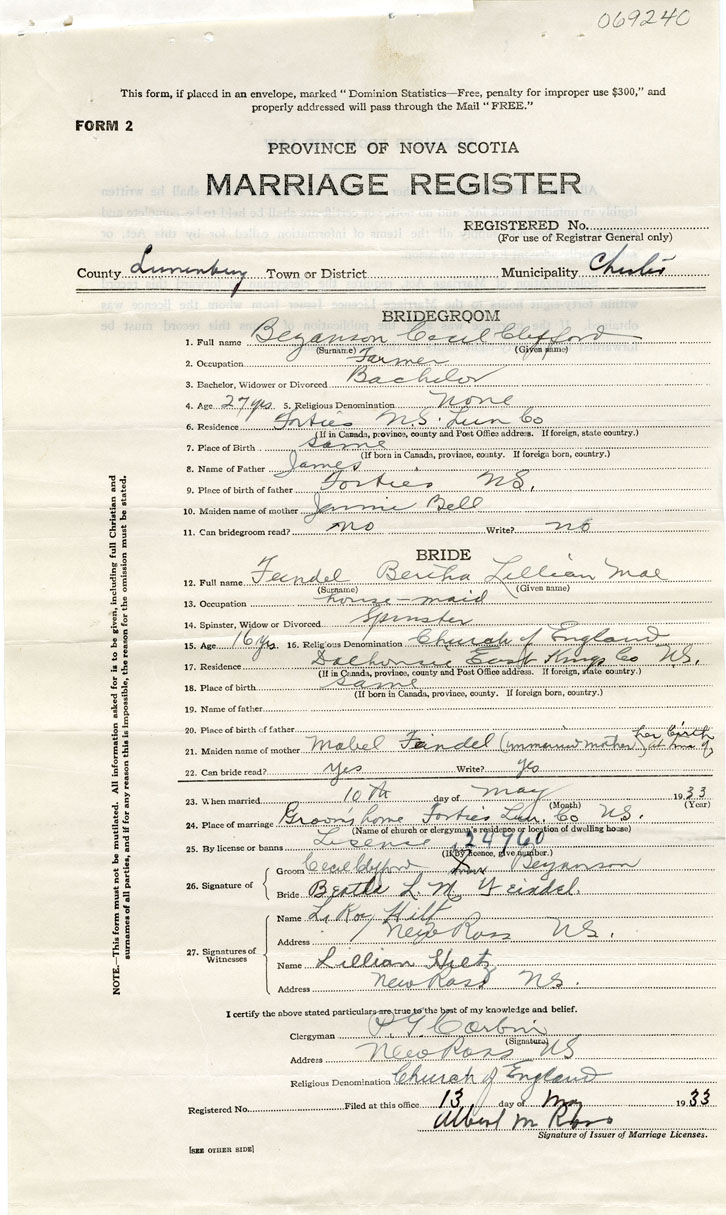 069240
This form, if placed in an envelope, marked "Dominion Statistics—Free, penalty for improper use $300," and
properly addressed will pass through the Mail "FREE."
FORM 2
PROVINCE OF NOVA SCOTIA
MARRIAGE REGISTER
REGISTERED No.
(For use of Registrar General only)
County Lunenburg Town or District Municipality Chester
BRIDEGROOM
1. Full name Bezanson Cecil Clifford
(Surname) (Given name)
2. Occupation Farmer
3. Bachelor, Widower or Divorced Bachelor
4. Age 27 yrs 5. Religious Denomination None
6. Residence Forties N.S. Lun Co
(If in Canada, province, county and Post Office address. If foreign, state country.)
7. Place of Birth same
(If born in Canada, province, county. If foreign born, country.)
8. Name of Father James
9. Place of birth of father Forties NS.
10. Maiden name of mother Jennie Bell
11. Can bridegroom read? no Write? no
BRIDE
12. Full name Feindel Bertha Lillian Mae
(Surname) (Given name)
13. Occupation house-maid
14. Spinster, Widow or Divorced Spinster
15. Age 16 yrs 16. Religious Denomination Church of England
17. Residence Dalhousie East Kings Co N.S.
(If in Canada, province, county and Post Office address. If foreign, state country.)
18. Place of birth same
(If born in Canada, province, county. If foreign born, country.)
19. Name of father
20. Place of birth of father
21. Maiden name of mother Mabel Feindel (unmarried mother at time of her birth
22. Can bride read? yes Write? yes
23. When married 10th day of May 1933
(Month) (Year)
24. Place of marriage Groom's home Forties Lun. Co NS.
(Name of church or clergyman's residence or location of dwelling house)
25. By license or banns License 24960
(If by licence, give number.)
26. Signature of
Groom Cecil Clifford X Bezanson
Bride Beatha L. M. Feindel.
27. Signatures of Witnesses
Name L. Roy Hilt
Address New Ross NS.
Name Lillian Hiltz
Address New Ross NS.
I certify the above stated particulars are true to the best of my knowledge and belief.
Clergyman Corbin
(Signature)
Address New Ross NS
Religious Denomination Church of England
Registered No. Filed at this office 13 day of May 1933
Albert M Ross
Signature of Issuer of Marriage Licenses.
[SEE OTHER SIDE]
NOTE.—This form must not be mutilated. All information asked for is to be given, including full Christian and
surnames of all parties, and if for any reason this is impossible, the reason for the omission must be stated.